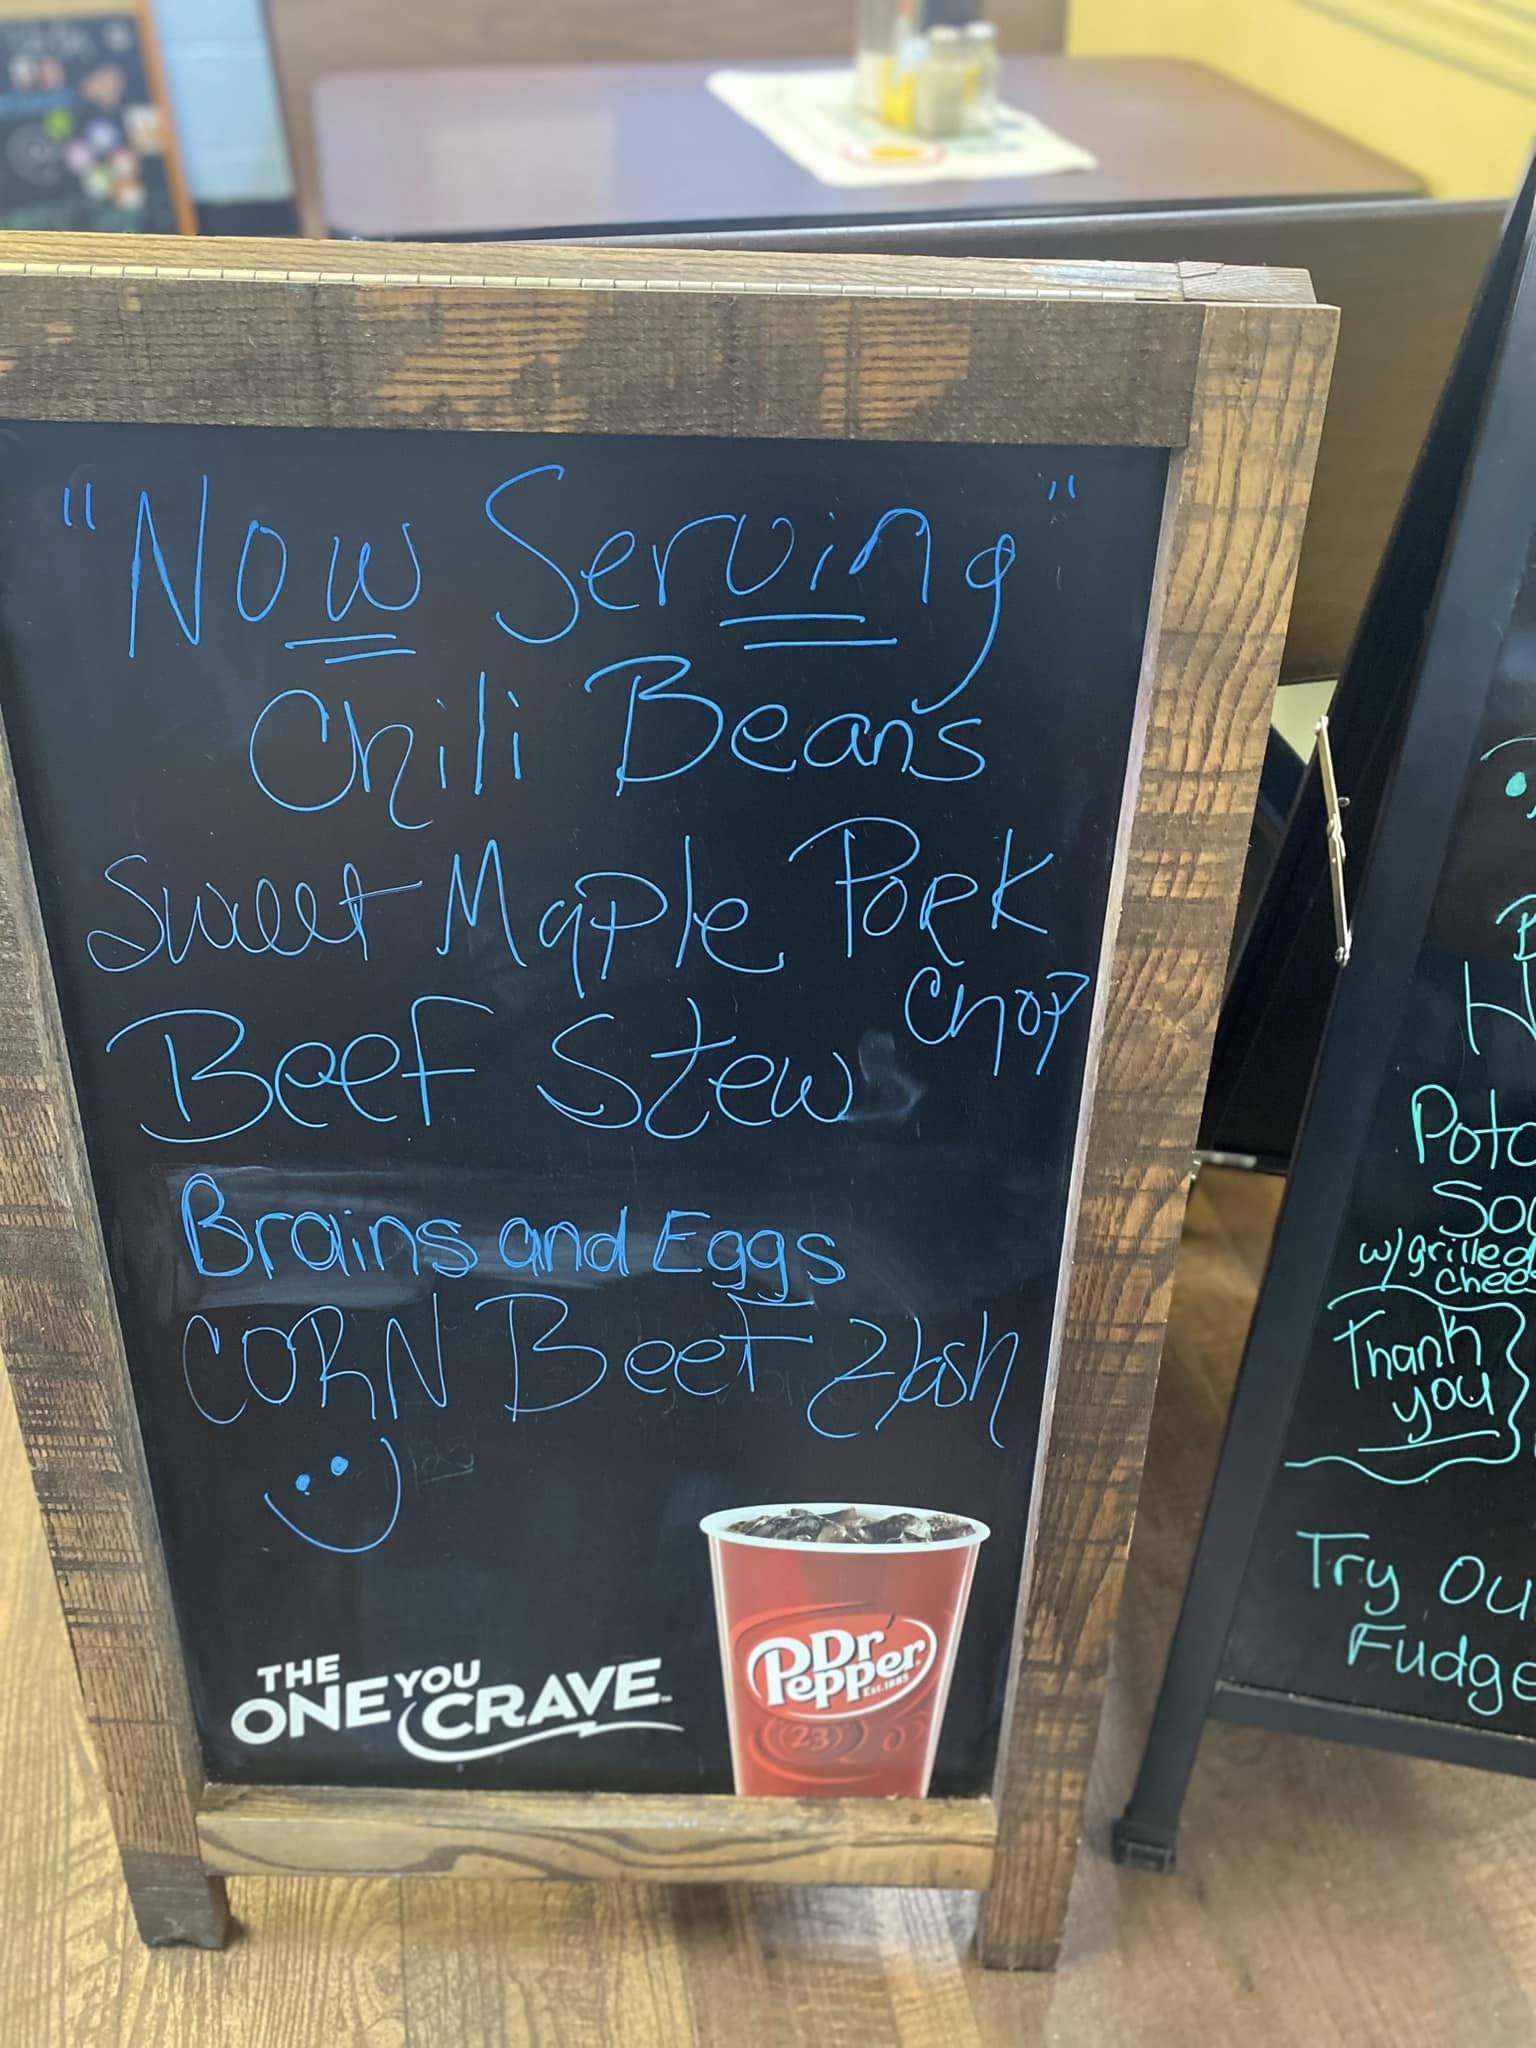 "Now Serving"
Chili Beans
Sweet Maple Pork
Chop
Beef Stew
Brains and Eggs
CORN Beef Hash
THE
ONE YOU
CRAVE
Dr Pepper
Est. 1885
23
w/grilled
Thank
you
Try Ou
Fudge